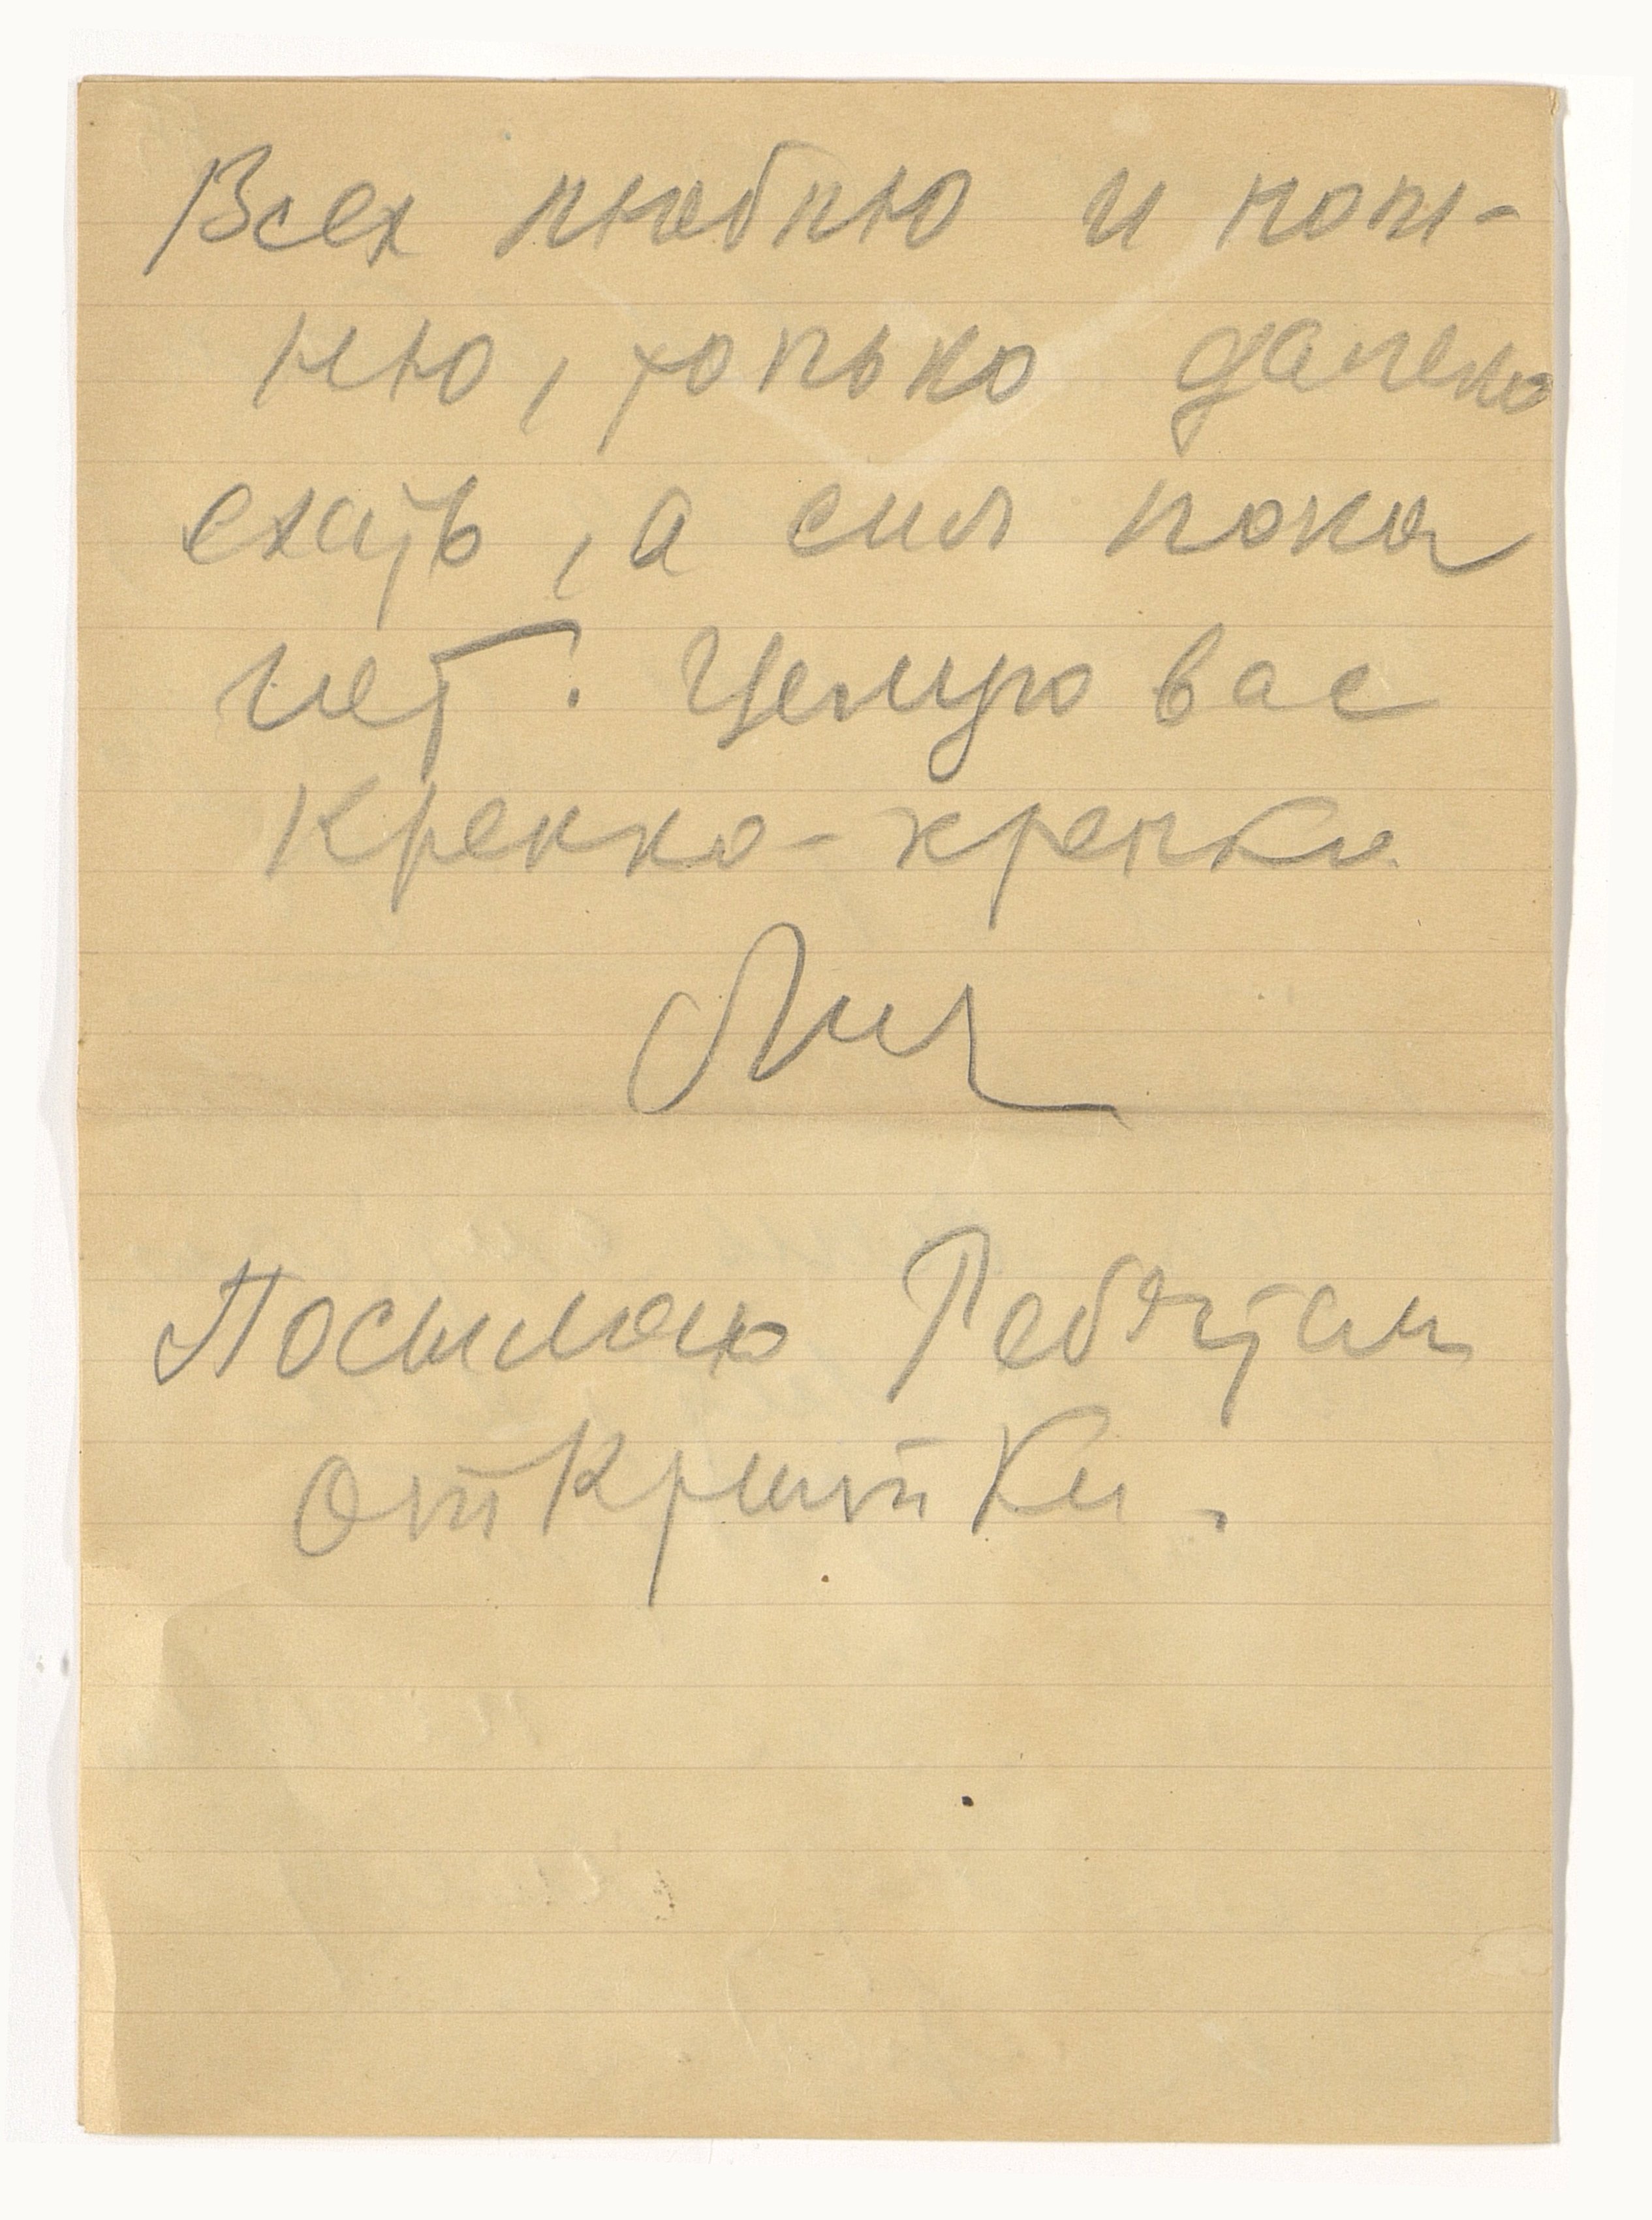 Всех люблю и пом-
ню, только далеко
ехать, а сил пока
нет. Целую вас
крепко-крепко
Лил
Посылаю Ребятам
открытки.